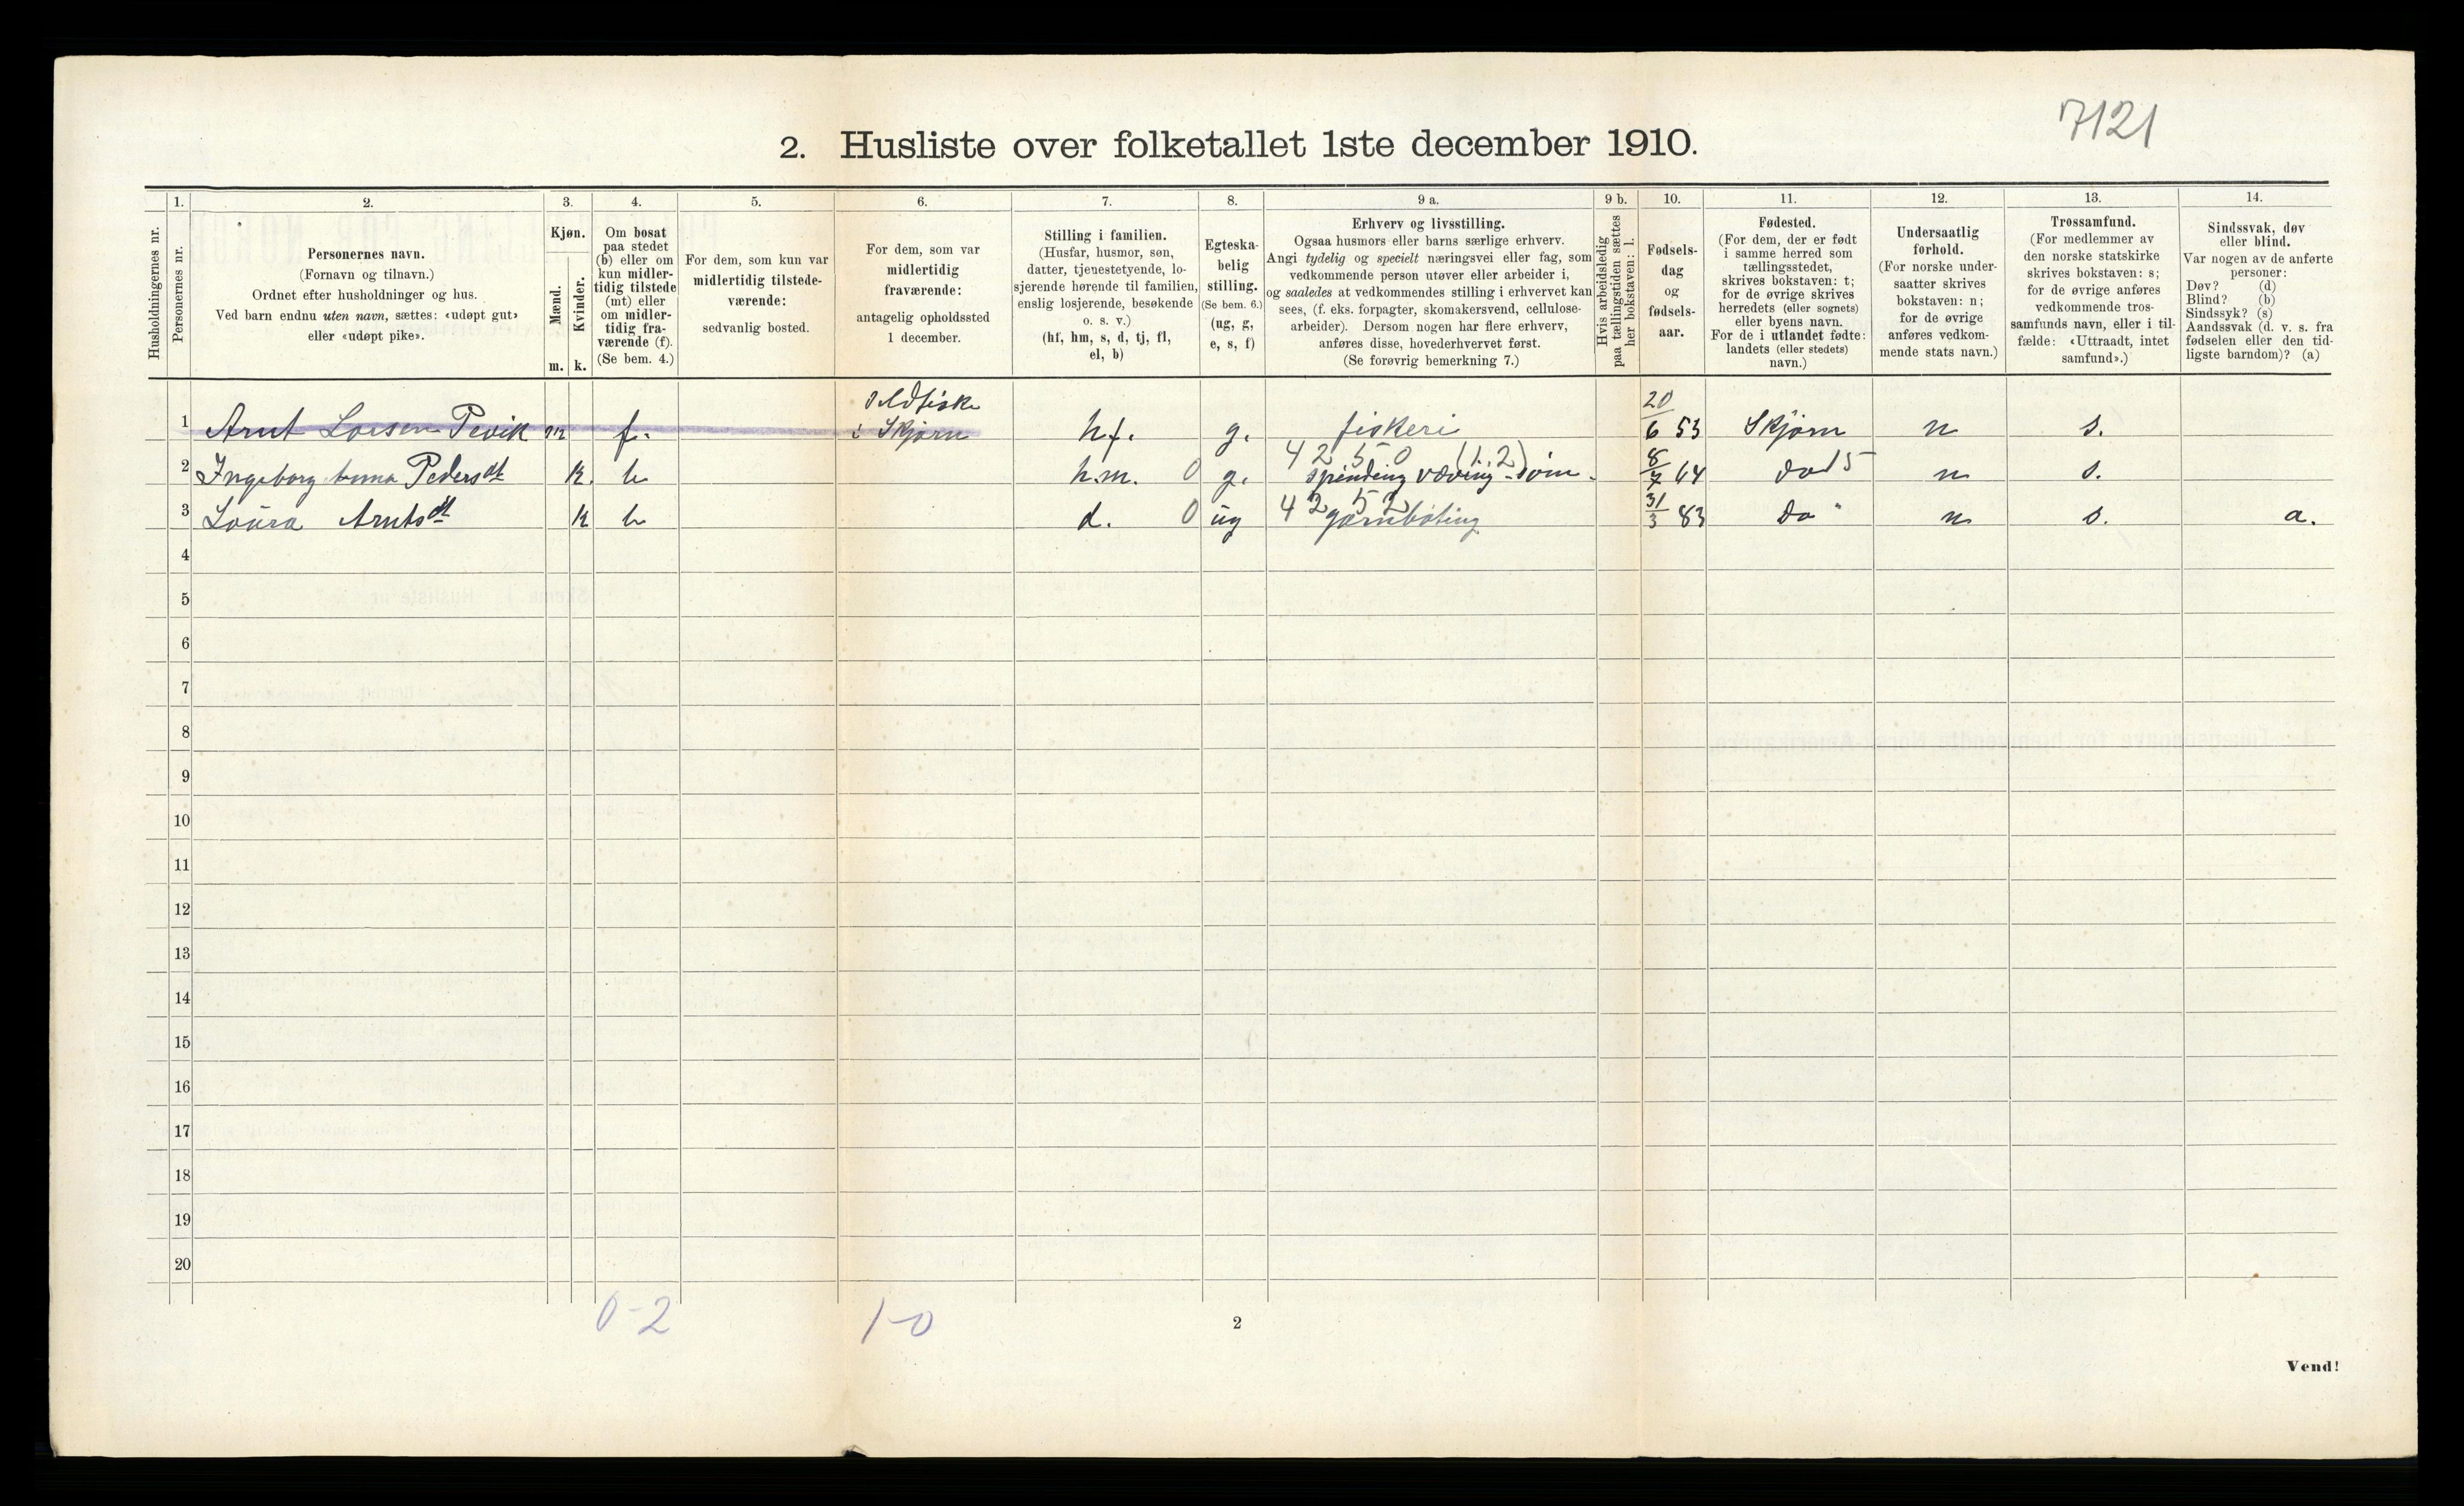 7121
2. Husliste over folketallet 1ste december 1910.
Husholdningernes nr.
1.
Personernes nr.
2.
Personernes navn.
(Fornavn og tilnavn.)
Ordnet efter husholdninger og hus.
Ved barn endnu uten navn, sættes: «udøpt gut»
eller «udøpt pike».
3.
Kjøn.
Mænd.
Kvinder.
m. k.
4.
Om bosat
paa stedet
(b) eller om
kun midler-
tidig tilstede
(mt) eller
om midler-
tidig fra-
værende (f).
(Se bem. 4.)
5.
For dem, som kun var
midlertidig tilstede-
værende:
sedvanlig bosted.
6.
For dem, som var
midlertidig
fraværende:
antagelig opholdssted
1 december.
7.
Stilling i familien.
(Husfar, husmor, søn,
datter, tjenestetyende, lo-
sjerende hørende til familien,
enslig losjerende, besøkende
o. s. v.)
(hf, hm, s, d, tj, fl,
el, b)
8.
Egteska-
belig
stilling.
(Se bem. 6.)
(ug, g,
e, s, f)
9 a.
Erhverv og livsstilling.
Ogsaa husmors eller barns særlige erhverv.
Angi tydelig og specielt næringsvei eller fag, som
vedkommende person utøver eller arbeider i,
og saaledes at vedkommendes stilling i erhvervet kan
sees, (f. eks. forpagter, skomakersvend, cellulose-
arbeider). Dersom nogen har flere erhverv,
anføres disse, hovederhvervet først.
(Se forøvrig bemerkning 7.)
9 b.
Hvis arbeidsledig
paa tællingstiden sættes
her bokstaven: l.
10.
Fødsels-
dag
og
fødsels-
aar.
11.
Fødested.
(For dem, der er født
i samme herred som
tællingsstedet,
skrives bokstaven: t;
for de øvrige skrives
herredets (eller sognets)
eller byens navn.
For de i utlandet fødte:
landets (eller stedets)
navn.)
12.
Undersaatlig
forhold.
(For norske under-
saatter skrives
bokstaven: n;
for de øvrige
anføres vedkom-
mende stats navn.)
13.
Trossamfund.
(For medlemmer av
den norske statskirke
skrives bokstaven: s;
for de øvrige anføres
vedkommende tros-
samfunds navn, eller i til-
fælde: «Uttraadt, intet
samfund».)
14.
Sindssvak, døv
eller blind.
Var nogen av de anførte
personer:
Døv? (d)
Blind? (b)
Sindssyk? (s)
Aandssvak (d. v. s. fra
fødselen eller den tid-
ligste barndom)? (a)
sildfiske
1 Arnt Larsen Pevik m f. i Skjørn h.f. g. fiskeri 20/6 53 Skjørn n s.
4250 (1.2)
2 Ingeborg Anna Pedersdt k. b h.m. 0 g. spinding væving søm. 8/7 64 do 15 n s.
4252
3 Laura Arntsdt k b d. 0 ug garnbøting 31/3 83 do " n s. a.
4
5
6
7
8
9
10
11
12
13
14
15
16
17
18
19
20
0-2 1-0
2
Vend!